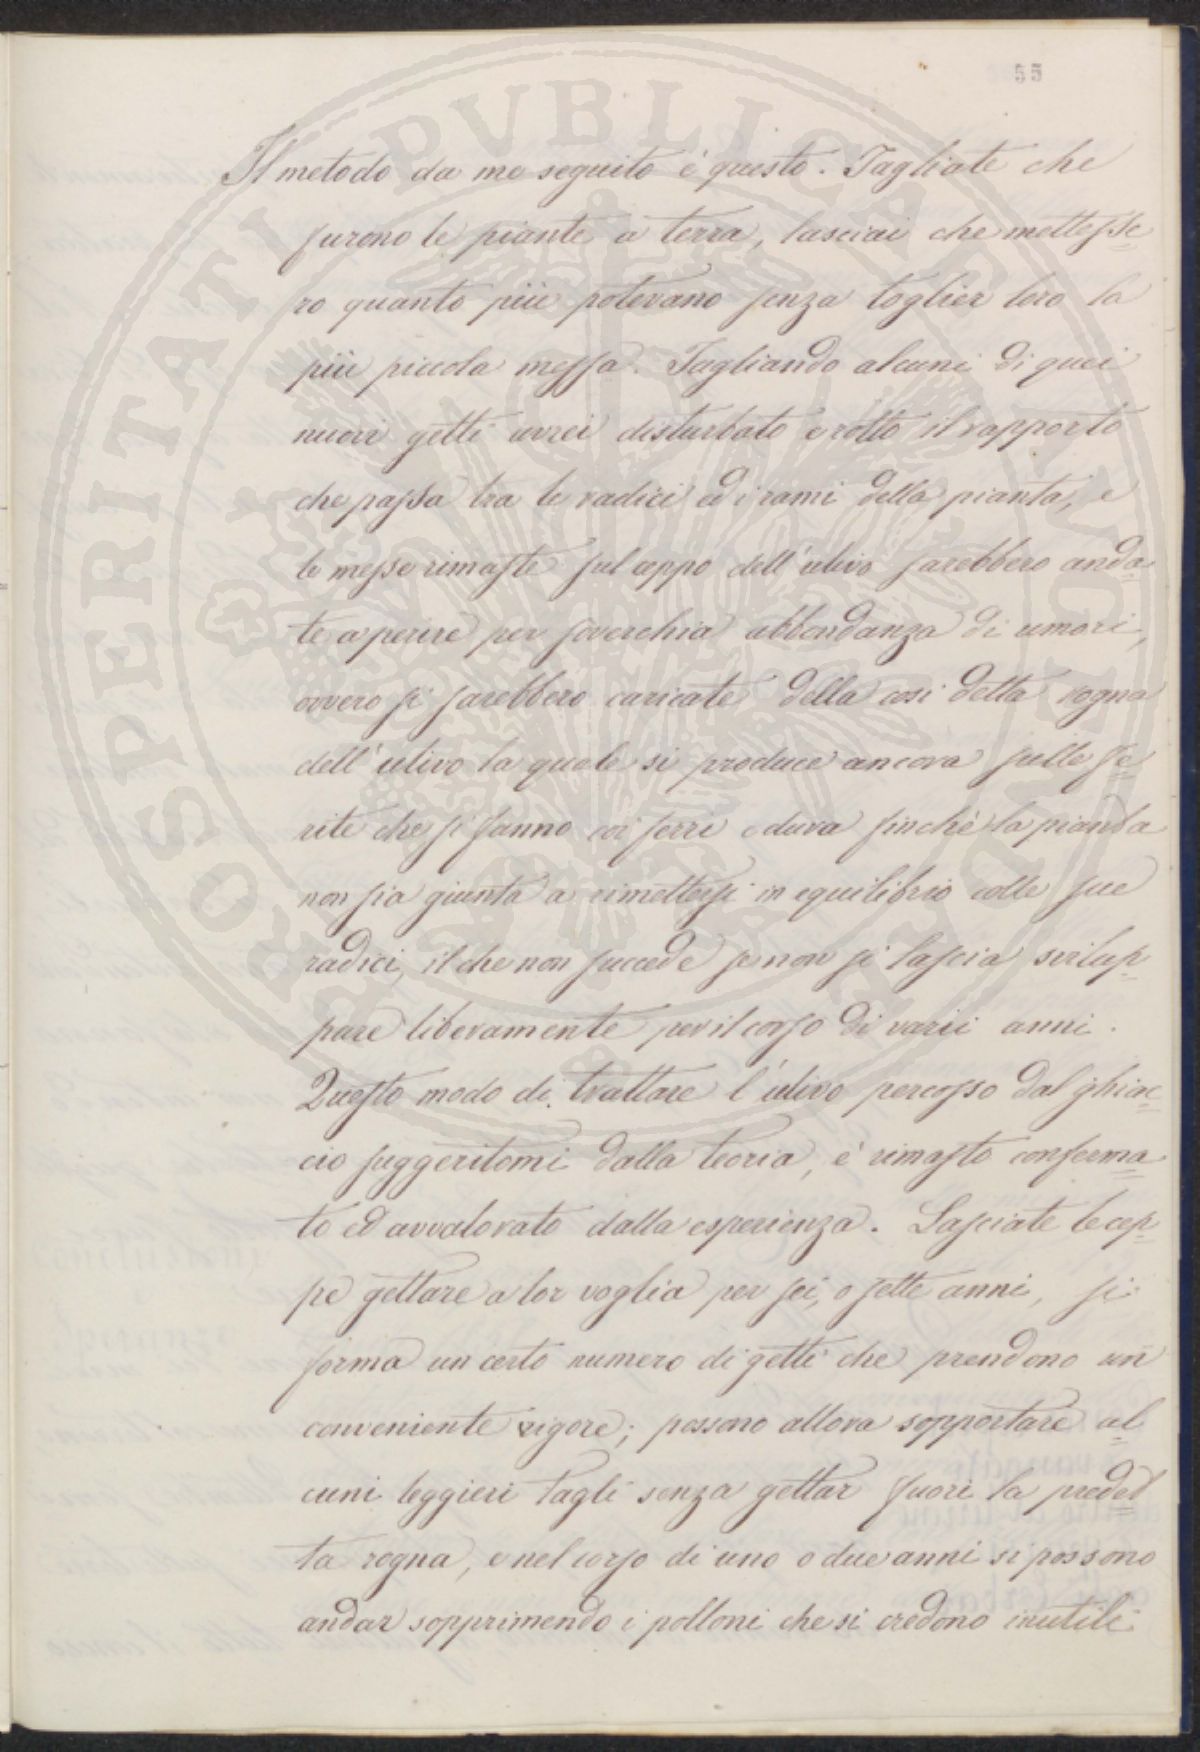 55
Il metodo da me seguito è questo. Tagliate che
furono le piante a terra, lasciai che mettesse
ro quanto più potevano senza toglier loro la
più piccola messa. Tagliando alcuni di quei
nuovi getti avrei disturbato e rotto il rapporto
che passa tra le radici ed i rami della pianta, e
le messe rimaste sul ceppo dell'ulivo sarebbero anda
te a perire per soverchia abbondanza di umori,
ovvero si sarebbero caricate della così detta rogna
dell'ulivo la quale si produce ancora sulle fe
rite che si fanno coi ferri e dura finchè la pianta
non sia giunta a rimettersi in equilibrio colle sue
radici, il che non succede se non si lascia svilup
pare liberamente per il corso di varii anni.
Questo modo di trattare l'ulivo percosso dal ghiac
cio suggeritomi dalla teoria, è rimasto conferma
to ed avvalorato dalla esperienza. Lasciate le cep
pe gettare a lor voglia per sei, o sette anni, si
forma un certo numero di getti che prendono un
conveniente vigore; possono allora sopportare al
cuni leggieri tagli senza gettar fuori la predet
ta rogna, e nel corso di uno o due anni si possono
andar sopprimendo i polloni che si credono inutili
PROSPERITATI PVBLICAE AVGENDAE